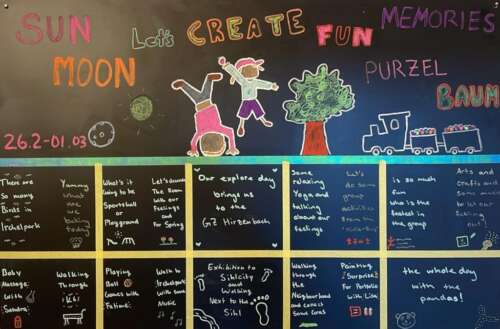 SUN
MOON
Let's CREATE FUN
MEMORIES
PURZEL
BAUM
26.2-01.03
There are
So many
Birds in
Irchelpark
Yummy
what
are we
baking
today
What's it
Going to be
Sportsball
or
Playground
The Room
with our
Feelings
and
For Spring
Our explore day
brings us
to the
GZ Hirzenbach
Some
relaxing
Yoga and
talking
about our
feelings
Let's
do some
group
activities
is so much
fun
who is the
fastest in
the group
Arts and
crafts and
Some music
to let our
feeling
out!
Baby
Massage
With
Sandra
Walking
Through
the
Playing
Ball
Games with
Walk to
Irchelpark
With some
Music
Exhibition to
Sihlcity
and
Walking
Next to the
Sihl
Walking
through
the
Neighborhood
and
Some Cones
Painting
Surprise!
For Portfolio
With Lisa
the whole day
with the
pandas!